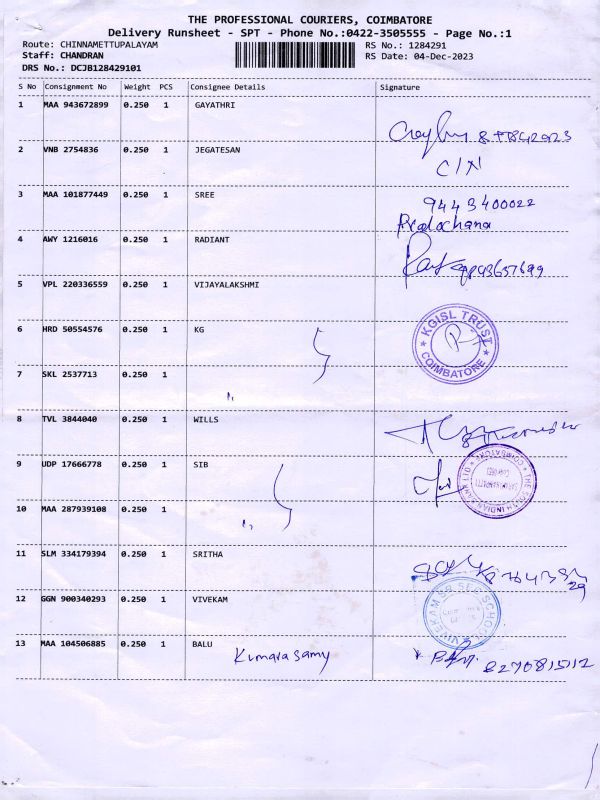 THE PROFESSIONAL COURIERS, COIMBATORE
Delivery Runsheet - SPT - Phone No.:0422-3505555 - Page No.:1
Route: CHINNAMETTUPALAYAM RS No.: 1284291
Staff: CHANDRAN RS Date: 04-Dec-2023
DRS No.: DCJB128429101
S No Consignment No Weight PCS Consignee Details Signature
1 MAA 943672899 0.250 1 GAYATHRI
2 VNB 2754836 0.250 1 JEGATESAN C/N
3 MAA 101877449 0.250 1 SREE 9443400022
4 AWY 1216016 0.250 1 RADIANT
5 VPL 220336559 0.250 1 VIJAYALAKSHMI
6 HRD 50554576 0.250 1 KG
KGISL TRUST COIMBATORE
7 SKL 2537713 0.250 1
8 TVL 3844040 0.250 1 WILLS
9 UDP 17666778 0.250 1 SIB
THE SOUTH INDIAN BANK LTD COIMBATORE
10 MAA 287939108 0.250 1
11 SLM 334179394 0.250 1 SRITHA
12 GGN 900340293 0.250 1 VIVEKAM
VIVEKAM SR. SEC. SCHOOL
13 MAA 104506885 0.250 1 BALU
Kumarasamy 8270815112